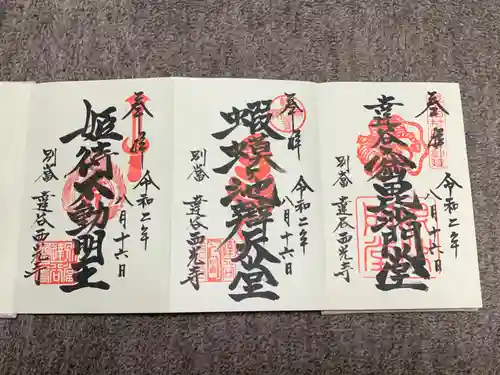 奉拝
令和二年
八月十六日
達谷窟毘沙門堂
別當 達谷西光寺
奉拝
令和二年
八月十六日
蝦蟆ヶ池辯天堂
別當 達谷西光寺
奉拝
令和二年
八月十六日
姫待不動明王
別當 達谷西光寺